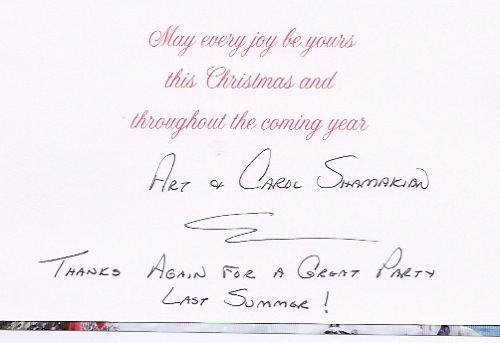 May every joy be yours
this Christmas and
throughout the coming year
Art & Carol Shamakian
Thanks Again for a Great Party
Last Summer!